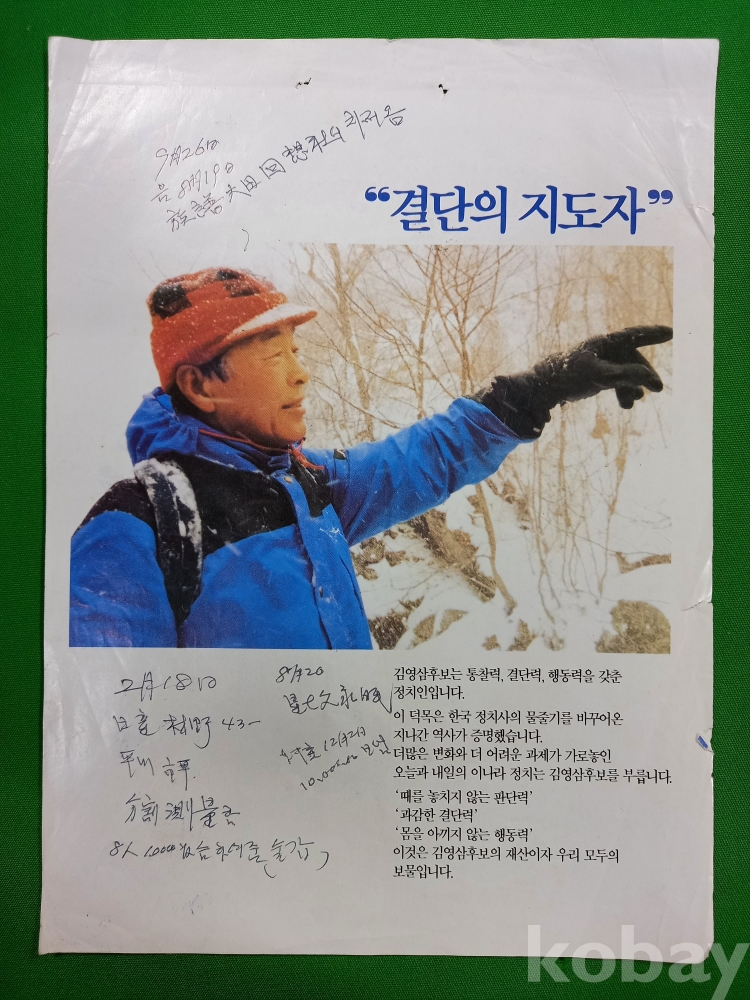 9月26日
음 8月19日
“결단의 지도자”
2月18日
林野 43-
分割測量
8人
8月20
12月2日
김영삼후보는 통찰력, 결단력, 행동력을 갖춘
정치인입니다.
이 덕목은 한국 정치사의 물줄기를 바꾸어온
지나간 역사가 증명했습니다.
더많은 변화와 더 어려운 과제가 가로놓인
오늘과 내일의 이나라 정치는 김영삼후보를 부릅니다.
‘때를 놓치지 않는 판단력’
‘과감한 결단력’
‘몸을 아끼지 않는 행동력’
이것은 김영삼후보의 재산이자 우리 모두의
보물입니다.
kobay